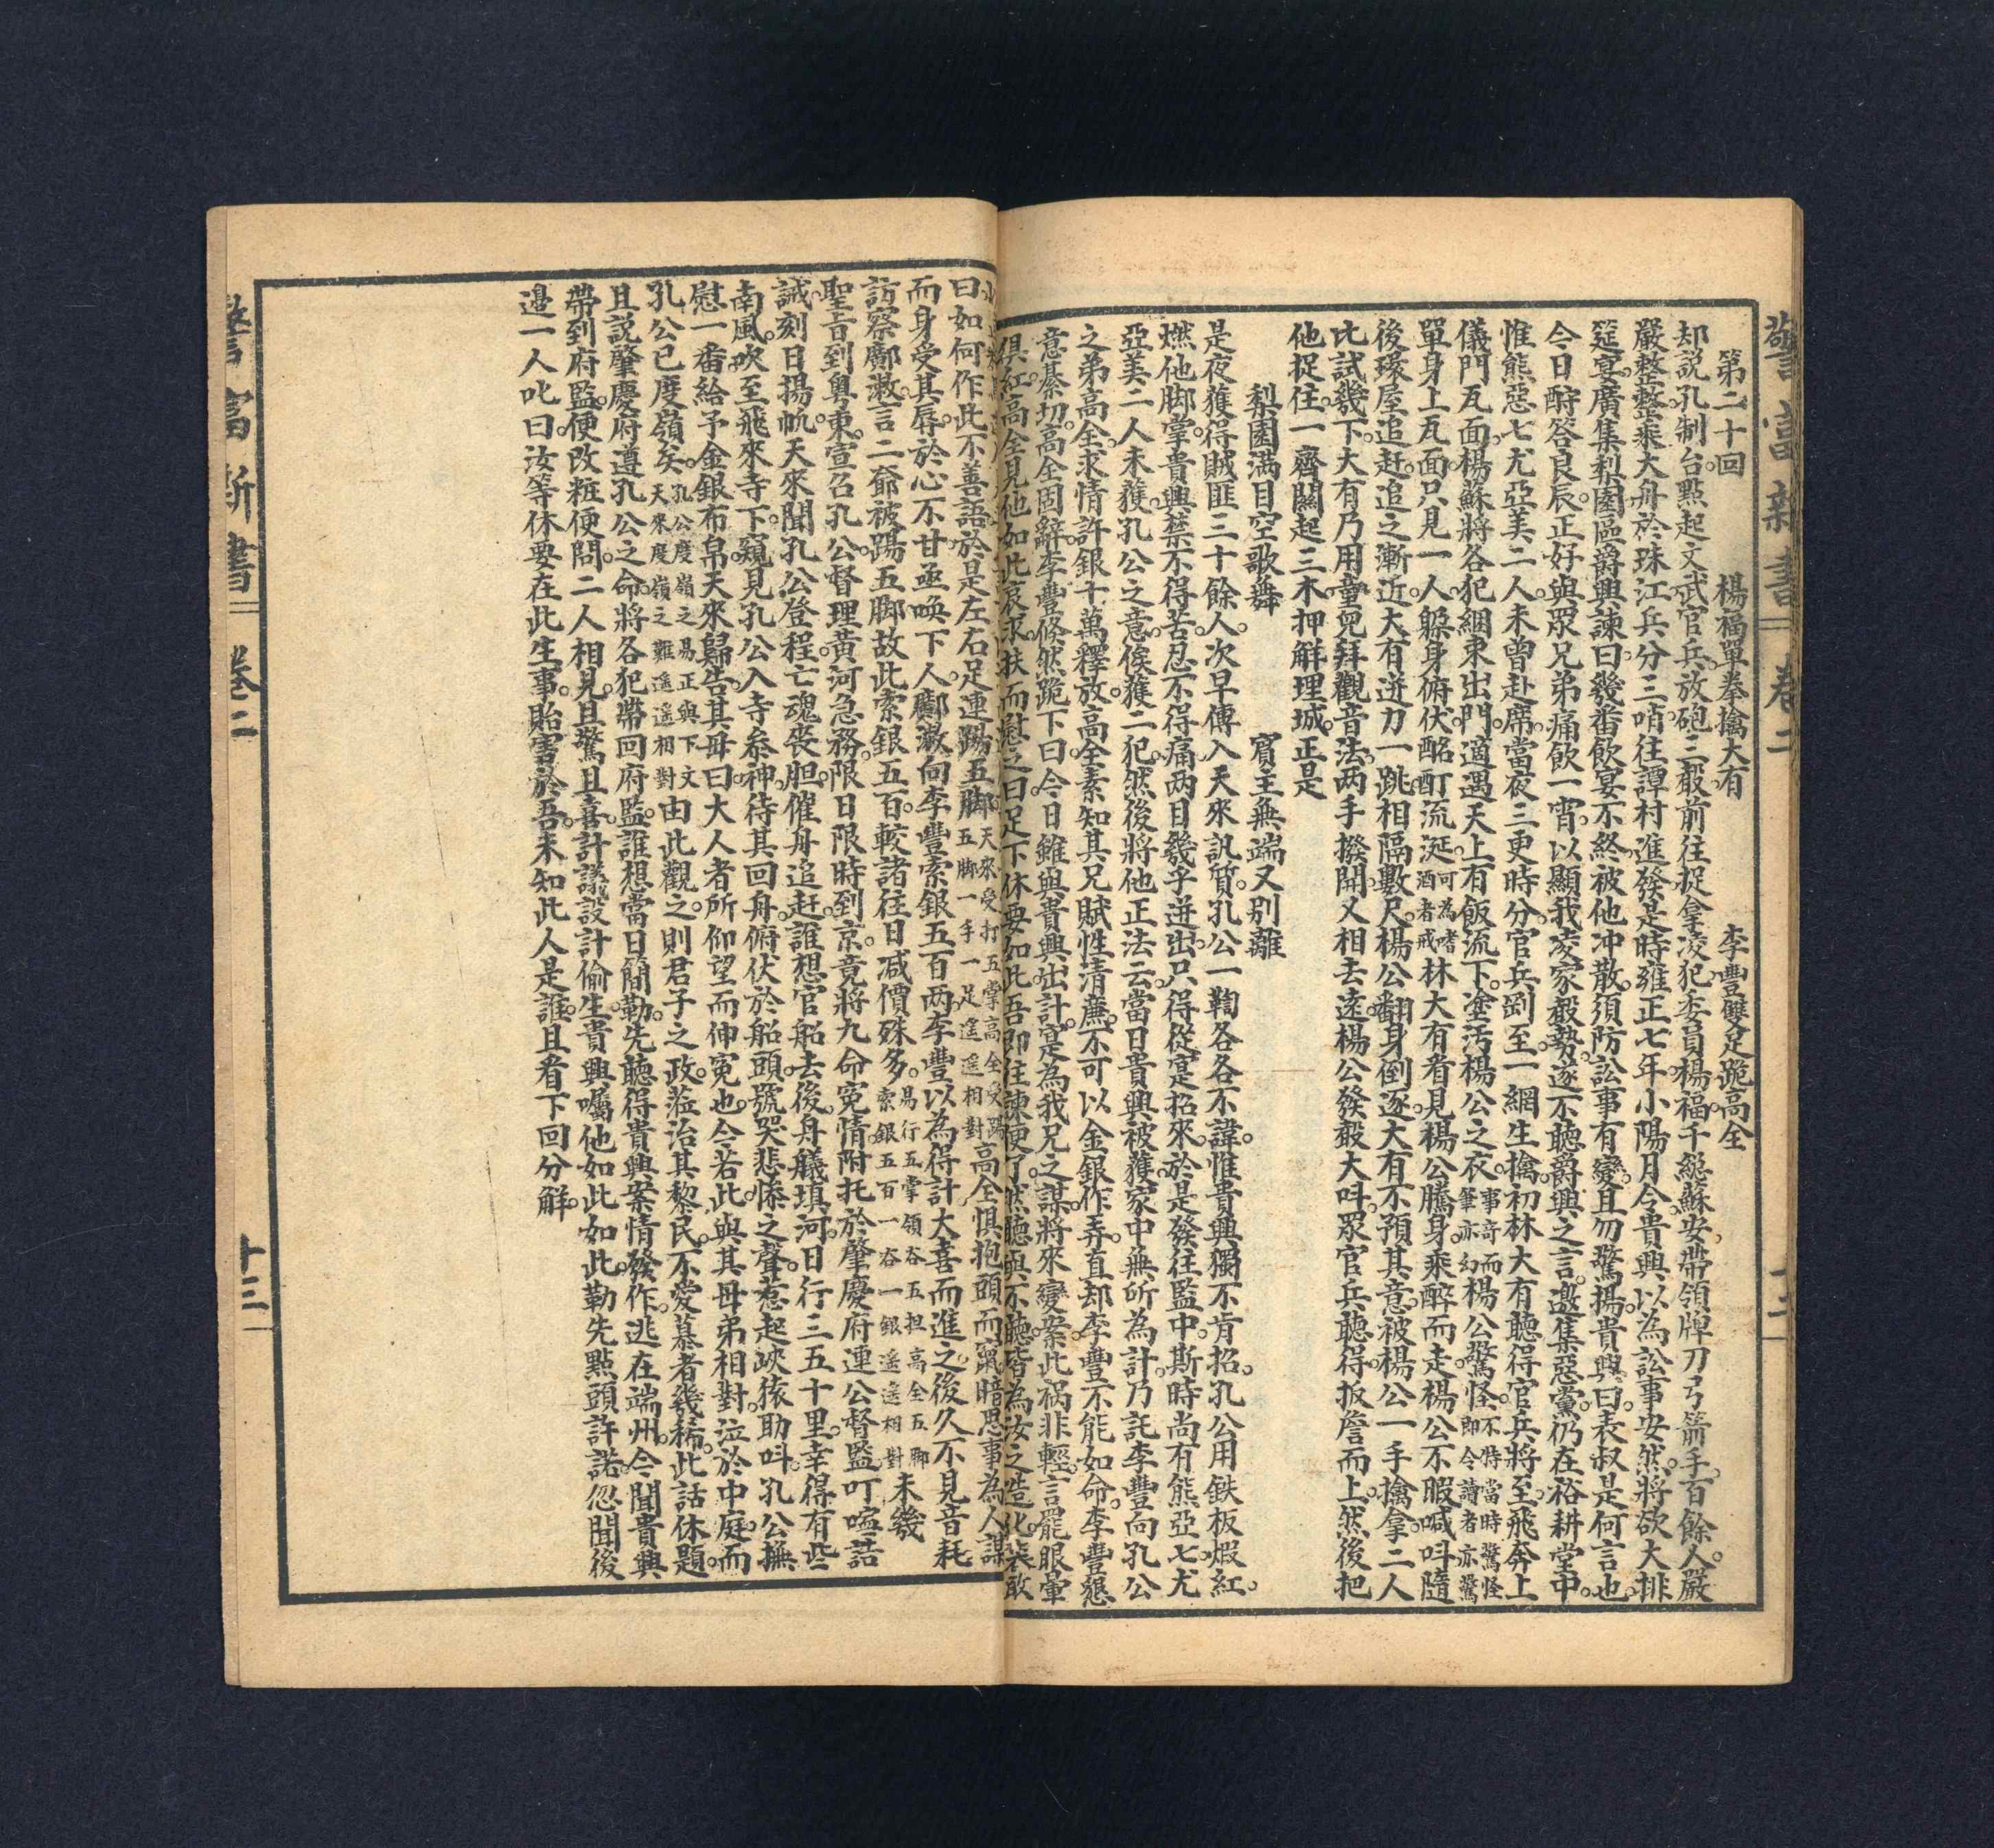 警富新書 卷二 十二
第二十回 楊福單拳擒大有 李豐雙足跪高全
却説孔制台點起文武官兵放砲三聲前往捉拿凌犯委員楊福千總蘇安帶領牌刀弓箭手百餘人嚴
嚴整整乘大舟於珠江兵分三哨往譚村進發是時雍正七年小陽月令貴興以為訟事安然將欲大排
筵宴廣集梨園區爵興諫曰幾番飲宴不終被他冲散須防訟事有變且勿驚揚貴興曰表叔是何言也
今日酧答良辰正好與眾兄弟痛飲一宵以顯我凌家聲勢遂不聽爵興之言邀集惡黨仍在裕耕堂中
惟熊惡七尤亞美二人未曾赴席當夜三更時分官兵到至一網生擒初林大有聽得官兵將至飛奔上
儀門瓦面楊蘇將各犯綑束出門適遇天上有飯流下塗污楊公之衣事奇而筆亦幻楊公驚怪不特當時驚怪即令讀者亦驚
單身上瓦面只見一人躶身俯伏酩酊流涎可為嗜酒者戒林大有看見楊公騰身乘醉而走楊公不暇喊呌隨
後環屋追赶追之漸近大有迸力一跳相隔數尺楊公翻身倒逐大有不預其意被楊公一手擒拿二人
比試幾下大有乃用童兒拜觀音法两手撥開又相去遠楊公發聲大呌眾官兵聽得扳簷而上然後把
他捉住一齊關起三木押解理城正是
梨園满目空歌舞 賓主無端又别離
是夜獲得賊匪三十餘人次早傳入天來訊質孔公一鞫各各不諱惟貴興獨不肯招孔公用鉄板煅紅
燃他脚掌貴興禁不得苦忍不得痛两日幾乎迸出只得從寔招來於是發往監中斯時尚有熊亞七尤
亞美二人未獲孔公之意俟獲二犯然後將他正法云當日貴興被獲家中無所為計乃託李豐向孔公
之弟高全求情許銀十萬釋放高全素知其兄賦性清亷不可以金銀作弄直却李豐不能如命李豐懇
意綦切高全固辭李豐倐然跪下曰今日雖與貴興出計寔為我兄之謀將來變案此禍非輕言罷眼暈
俱紅高全見他如此哀求扶而慰之曰足下休要如此吾即往諫便了然聽與不聽皆為汝之造化裴敢
曰如何作此不善語於是左右足連踢五脚天來受打五掌高全受踢五脚一手一足遙遙相對高全惧抱頭而竄暗思事為人謀
而身受其辱於心不甘亟喚下人鄺漵向李豐索銀五百两李豐以為得計大喜而進之後久不見音耗
訪察鄺漵言二爺被踢五脚故此索銀五百較諸徃日减價殊多易行五掌領谷五担高全五脚索銀五百一谷一銀遙遙相對未幾
聖旨到粤東宣召孔公督理黄河急務限日限時到京竟將九命寃情附托於肇慶府連公督監叮嚀誥
誡刻日揚帆天來聞孔公登程亡魂喪胆催舟追赶誰想官船去後舟艤填河日行三五十里幸得有些
南風吹至飛來寺下窺見孔公入寺叅神待其回舟俯伏於船頭號哭悲惨之聲惹起峽猿助呌孔公撫
慰一番給予金銀布帛天來歸告其母曰大人者所仰望而伸寃也今若此與其母弟相對泣於中庭而
孔公已度嶺矣孔公度嶺之易正與下文天來度嶺之難遙遙相對由此觀之則君子之政蒞治其黎民不愛慕者幾稀此話休題
且説肇慶府遵孔公之命將各犯帶回府監誰想當日簡勒先聽得貴興案情發作逃在端州今聞貴興
帶到府監便改粧便問二人相見且驚且喜計議設計偷生貴興囑他如此如此勒先點頭許諾忽聞後
邊一人叱曰汝等休要在此生事貽害於吾未知此人是誰且看下回分解
警富新書 卷二 十三